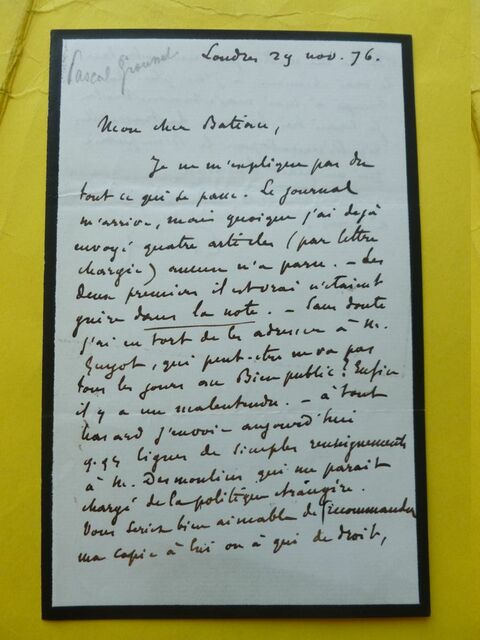 Pascal Grousset
Londres 29 nov. 76.
Mon cher Batiau,
Je ne m'explique pas du
tout ce qui se passe. Le journal
m'arrive, mais quoique j'ai dejà
envoyé quatre articles (par lettre
chargée) aucun n'a paru. – Les
deux premiers il est vrai n'étaient
guère dans la note. – Sans doute
j'ai eu tort de les adresser à M.
Guyot, qui peut-être ne va pas
tous les jours au Bien public? Enfin
il y a un malentendu. – à tout
hasard j'envoie aujourd'hui
q.qs lignes de simples renseignements
à M. Desmoulins qui me parait
chargé de la politique étrangère.
Vous seriez bien aimable de recommander
ma copie à lui ou à qui de droit,